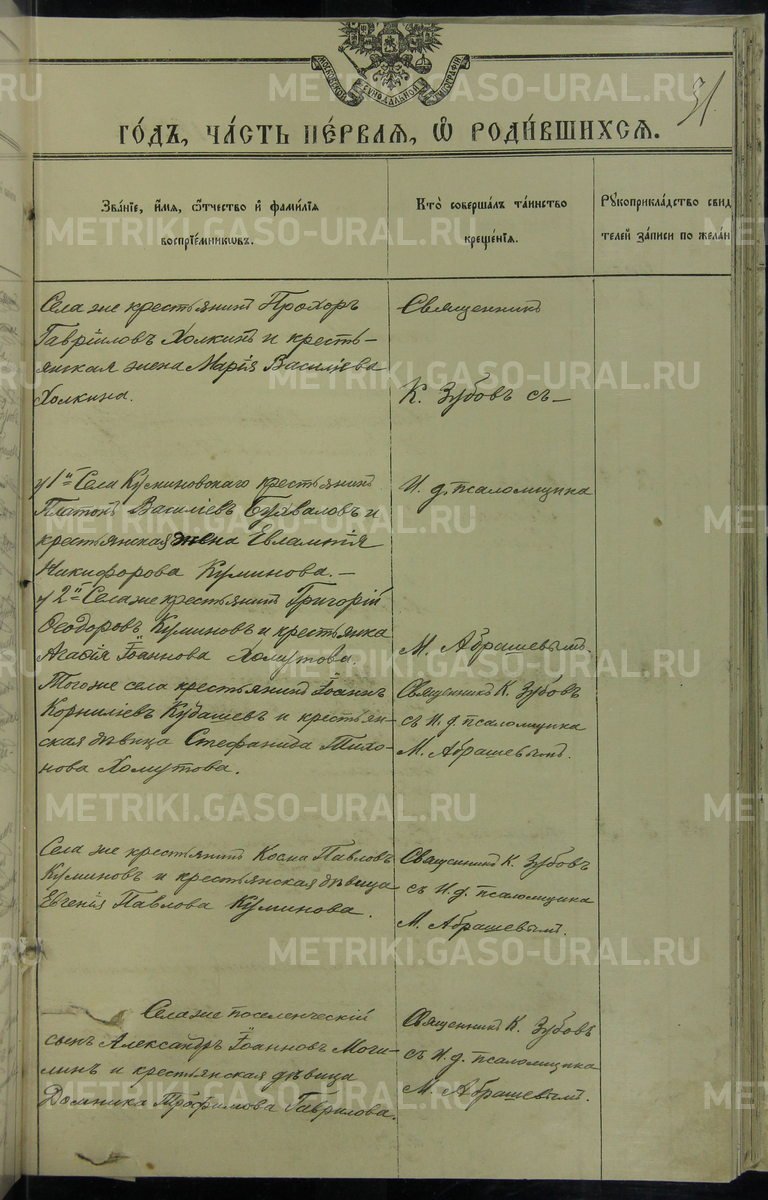 МОСКОВСКОЙ СѴНОДАЛЬНОЙ ТИПОГРАФІИ
31.
ГО́ДЪ, ЧА́СТЬ ПЕ́РВАЯ, Ѽ РОДИ́ВШИХСѦ.
Зва́нїе, и҆́мѧ, ѻ҆́тчество и҆ фами́лїѧ
воспрїе́мникѡвъ.
Кто̀ соверша́лъ та́инство
креще́нїѧ.
Рꙋкоприкла́дство свид
телей за́писи по жела́н
Села же крестьянинъ Прохоръ
Гавріиловъ Холкинъ и кресть-
янская жена Марія Василіева
Холкина.
Священникъ
К. Зубовъ съ
у 1й Села Куминовскаго крестьянинъ
Платонъ Василіевъ Бухваловъ и
крестьянская жена Евлампія
Никифорова Куминова. –
у 2й Села же крестьянинъ Григорій
Ѳеодоровъ Куминовъ и крестьянка
Агафія Іоаннова Хомутова.
И. д. псаломщика
М. Абрашевымъ.
Того же села крестьянинъ Іоаннъ
Корниліевъ Кубашевъ и крестьян-
ская дѣвица Стефанида Тихо-
нова Хомутова.
Священникъ К. Зубовъ
съ И. д. псаломщика
М. Абрашевымъ.
Села же крестьянинъ Косма Павловъ
Куминовъ и крестьянская дѣвица
Евгенія Павлова Куминова.
Священникъ К. Зубовъ
съ И. д. псаломщика
М. Абрашевымъ.
Села же поселенческій
сынъ Александръ Іоанновъ Моги-
линъ и крестьянская дѣвица
Домника Трофимова Гаврилова.
Священникъ К. Зубовъ
съ И. д. псаломщика
М. Абрашевымъ.
METRIKI.GASO-URAL.RU